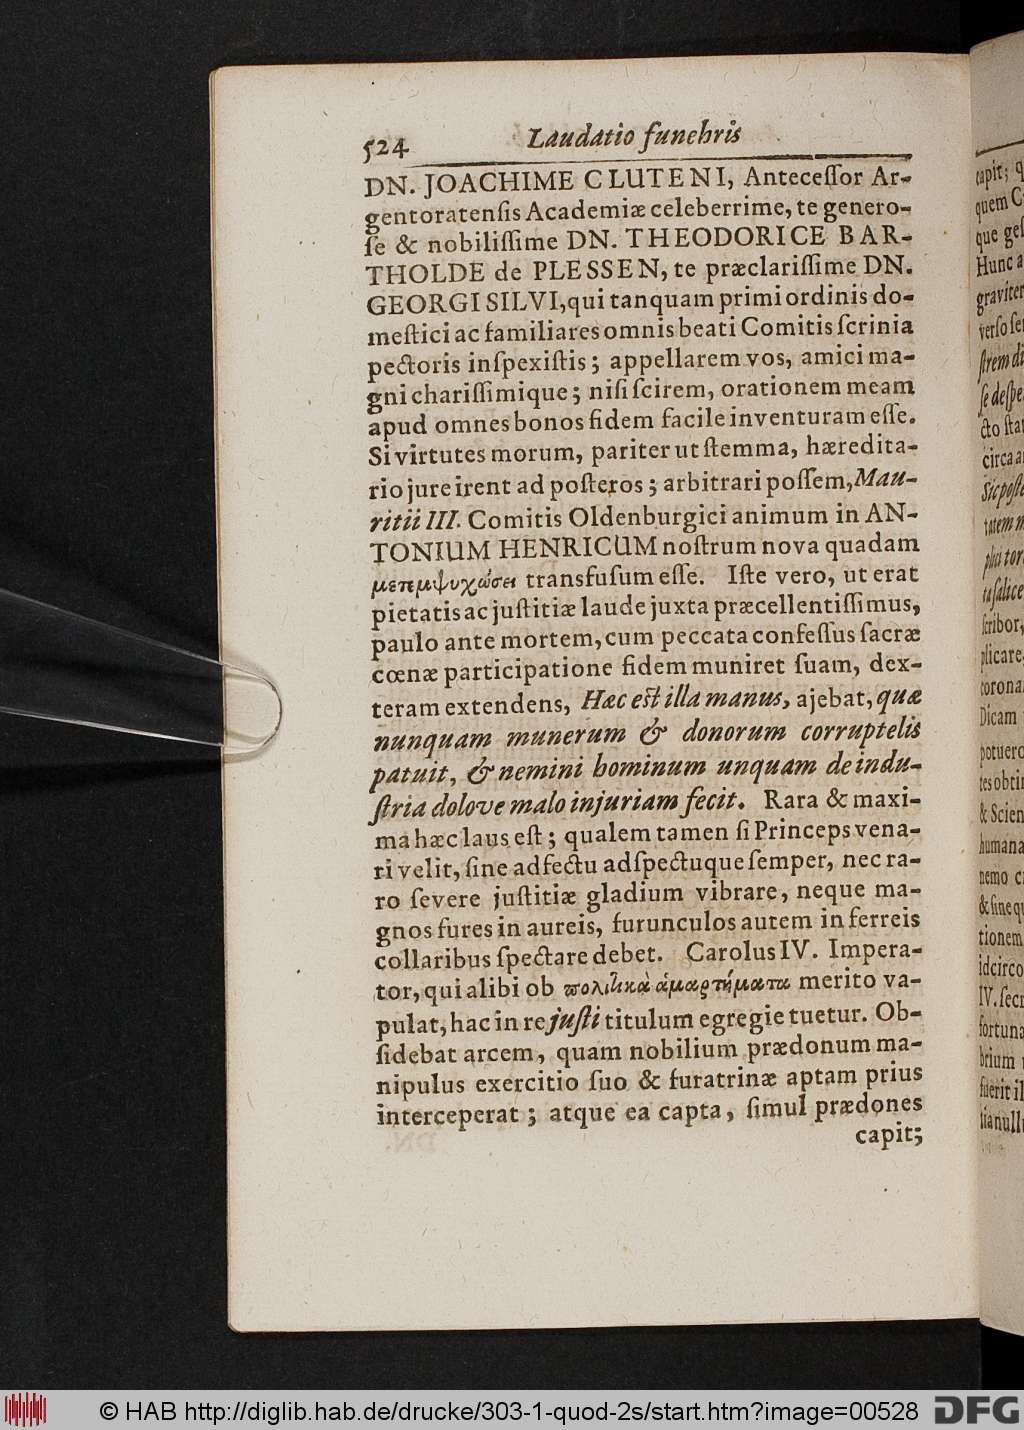 524 Laudatio funebris
DN. JOACHIME CLUTENI, Anteceſſor Ar-
gentoratenſis Academiæ celeberrime, te genero-
ſe & nobiliſſime DN. THEODORICE BAR-
THOLDE de PLESSEN, te præclariſſime DN.
GEORGI SILVI, qui tanquam primi ordinis do-
meſtici ac familiares omnis beati Comitis ſcrinia
pectoris inſpexiſtis; appellarem vos, amici ma-
gni chariſſimique; niſi ſcirem, orationem meam
apud omnes bonos fidem facile inventuram eſſe.
Si virtutes morum, pariter ut ſtemma, hæredita-
rio jure irent ad poſteros; arbitrari poſſem, Mau-
ritii III. Comitis Oldenburgici animum in AN-
TONIUM HENRICUM noſtrum nova quadam
μετεμψυχώσει transfuſum eſſe. Iſte vero, ut erat
pietatis ac juſtitiæ laude juxta præcellentiſſimus,
paulo ante mortem, cum peccata confeſſus ſacræ
cœnæ participatione fidem muniret ſuam, dex-
teram extendens, Hæc eſt illa manus, ajebat, quæ
nunquam munerum & donorum corruptelis
patuit, & nemini hominum unquam de indu-
ſtria dolove malo injuriam fecit. Rara & maxi-
ma hæc laus eſt; qualem tamen ſi Princeps vena-
ri velit, ſine adfectu adſpectuque ſemper, nec ra-
ro ſevere juſtitiæ gladium vibrare, neque ma-
gnos fures in aureis, furunculos autem in ferreis
collaribus ſpectare debet. Carolus IV. Impera-
tor, qui alibi ob πολιτικὰ ἁμαρτήματα merito va-
pulat, hac in re juſti titulum egregie tuetur. Ob-
ſidebat arcem, quam nobilium prædonum ma-
nipulus exercitio ſuo & furatrinæ aptam prius
interceperat; atque ea capta, ſimul prædones
capit;
capit; q
quem C
que geſ
Hunc a
graviter
verſo ſe
ſtrem di
ſe deſpe
cto ſta
circa a
Sic poſt
tatem m
plus tor
ia ſalice
ſcribor,
plicare,
corona
Dicam
potuero
tes obti
& Scien
humana
nemo c
& ſine q
tionem
idcirco
IV. ſec
fortuna
brium
fuerit il
lia null
© HAB http://diglib.hab.de/drucke/303-1-quod-2s/start.htm?image=00528 DFG